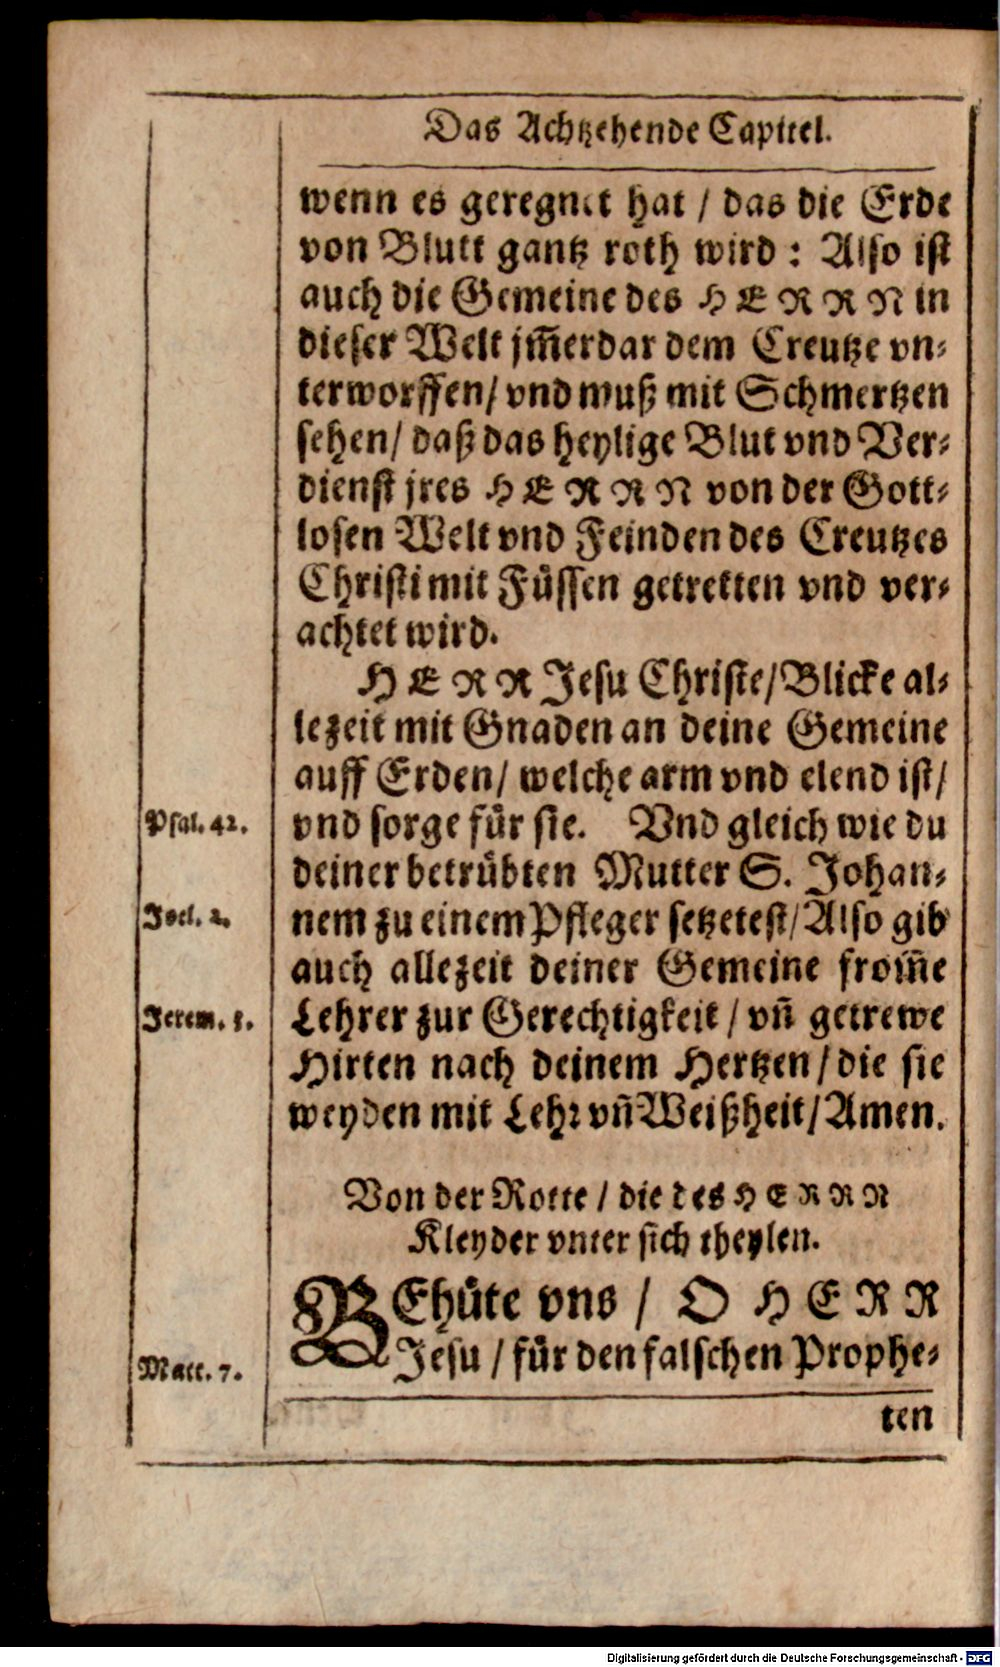 Das Achtzehende Capittel.
wenn es geregnet hat / das die Erde
von Blutt gantz roth wird : Also ist
auch die Gemeine des HERRN in
dieser Welt jm̃erdar dem Creutze vn-
terworffen / vnd muß mit Schmertzen
sehen / daß das heylige Blut vnd Ver-
dienst jres HERRN von der Gott-
losen Welt vnd Feinden des Creutzes
Christi mit Füssen getretten vnd ver-
achtet wird.
HERR Jesu Christe / Blicke al-
lezeit mit Gnaden an deine Gemeine
auff Erden / welche arm vnd elend ist /
Psal. 42.
vnd sorge für sie. Vnd gleich wie du
deiner betrübten Mutter S. Johan-
Joel. 2.
nem zu einem Pfleger setzetest / Also gib
auch allezeit deiner Gemeine from̃e
Jerem. 3.
Lehrer zur Gerechtigkeit / vñ getrewe
Hirten nach deinem Hertzen / die sie
weyden mit Lehr vñ Weißheit / Amen.
Von der Rotte / die des HERRN
Kleyder vnter sich theylen.
BEhüte vns / O HERR
Jesu / für den falschen Prophe-
Matt. 7.
ten
Digitalisierung gefördert durch die Deutsche Forschungsgemeinschaft - DFG